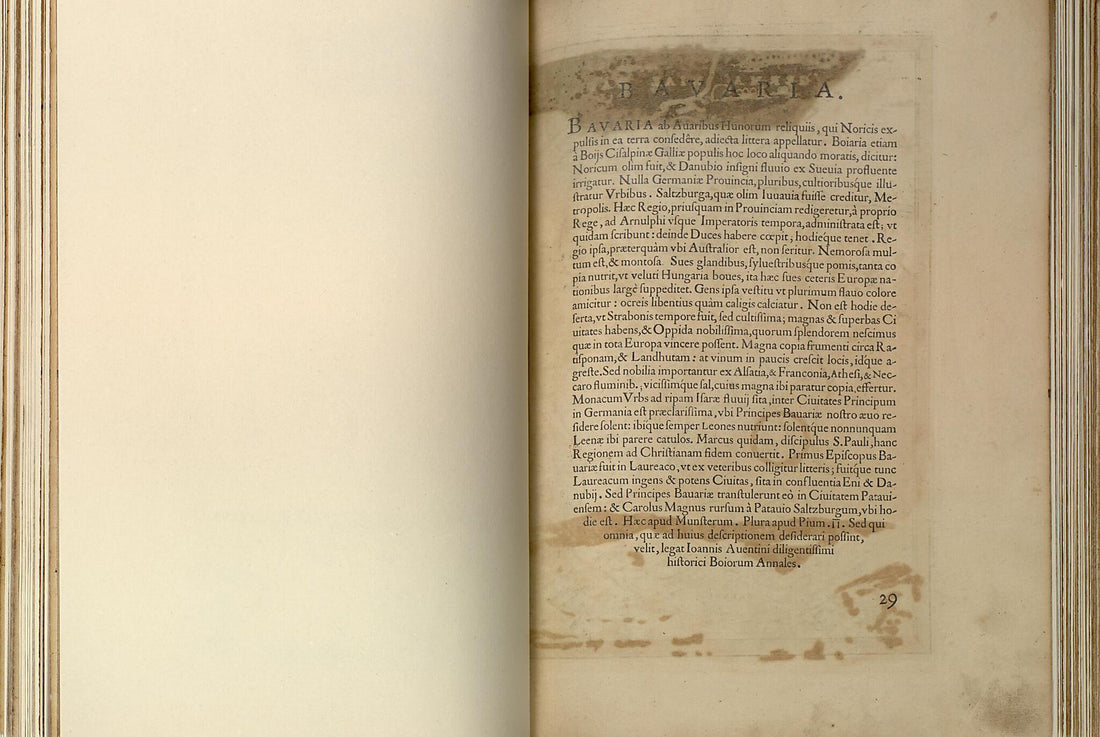 BAVARIA.
BAVARIA ab Auaribus Hunorum reliquiis, qui Noricis ex-
pulsis in ea terra consedêre, adiecta littera appellatur. Boiaria etiam
à Boijs Cisalpinæ Galliæ populis hoc loco aliquando moratis, dicitur:
Noricum olim fuit, & Danubio insigni fluuio ex Sueuia profluente
irrigatur. Nulla Germaniæ Prouincia, pluribus, cultioribusque illu-
stratur Vrbibus. Saltzburga, quæ olim Iuuauia fuisse creditur, Me-
tropolis. Hæc Regio, priusquam in Prouinciam redigeretur, à proprio
Rege, ad Arnulphi vsque Imperatoris tempora, administrata est; vt
quidam scribunt: deinde Duces habere cœpit, hodieque tenet. Re-
gio ipsa, præterquàm vbi Australior est, non seritur. Nemorosa mul-
tum est, & montosa. Sues glandibus, syluestribusque pomis, tanta co
pia nutrit, vt veluti Hungaria boues, ita hæc sues ceteris Europæ na-
tionibus largè suppeditet. Gens ipsa vestitu vt plurimum flauo colore
amicitur: ocreis libentius quàm caligis calciatur. Non est hodie de-
serta, vt Strabonis tempore fuit, sed cultissima; magnas & superbas Ci
uitates habens, & Oppida nobilissima, quorum splendorem nescimus
quæ in tota Europa vincere possent. Magna copia frumenti circa Ra-
tisponam, & Landhutam: at vinum in paucis crescit locis, idque a-
greste. Sed nobilia importantur ex Alsatia, & Franconia, Athesi, & Nec-
caro fluminib., vicissimque sal, cuius magna ibi paratur copia, effertur.
Monacum Vrbs ad ripam Isaræ fluuij sita, inter Ciuitates Principum
in Germania est præclarissima, vbi Principes Bauariæ nostro æuo re-
sidere solent: ibique semper Leones nutriunt: solentque nonnunquam
Leenæ ibi parere catulos. Marcus quidam, discipulus S. Pauli, hanc
Regionem ad Christianam fidem conuertit. Primus Episcopus Ba-
uariæ fuit in Laureaco, vt ex veteribus colligitur litteris; fuitque tunc
Laureacum ingens & potens Ciuitas, sita in confluentia Eni & Da-
nubij. Sed Principes Bauariæ transtulerunt eò in Ciuitatem Pataui-
ensem: & Carolus Magnus rursum à Patauio Saltzburgum, vbi ho-
die est. Hæc apud Munsterum. Plura apud Pium .II. Sed qui
omnia, quæ ad huius descriptionem desiderari possint,
velit, legat Ioannis Auentini diligentissimi
historici Boiorum Annales.
29